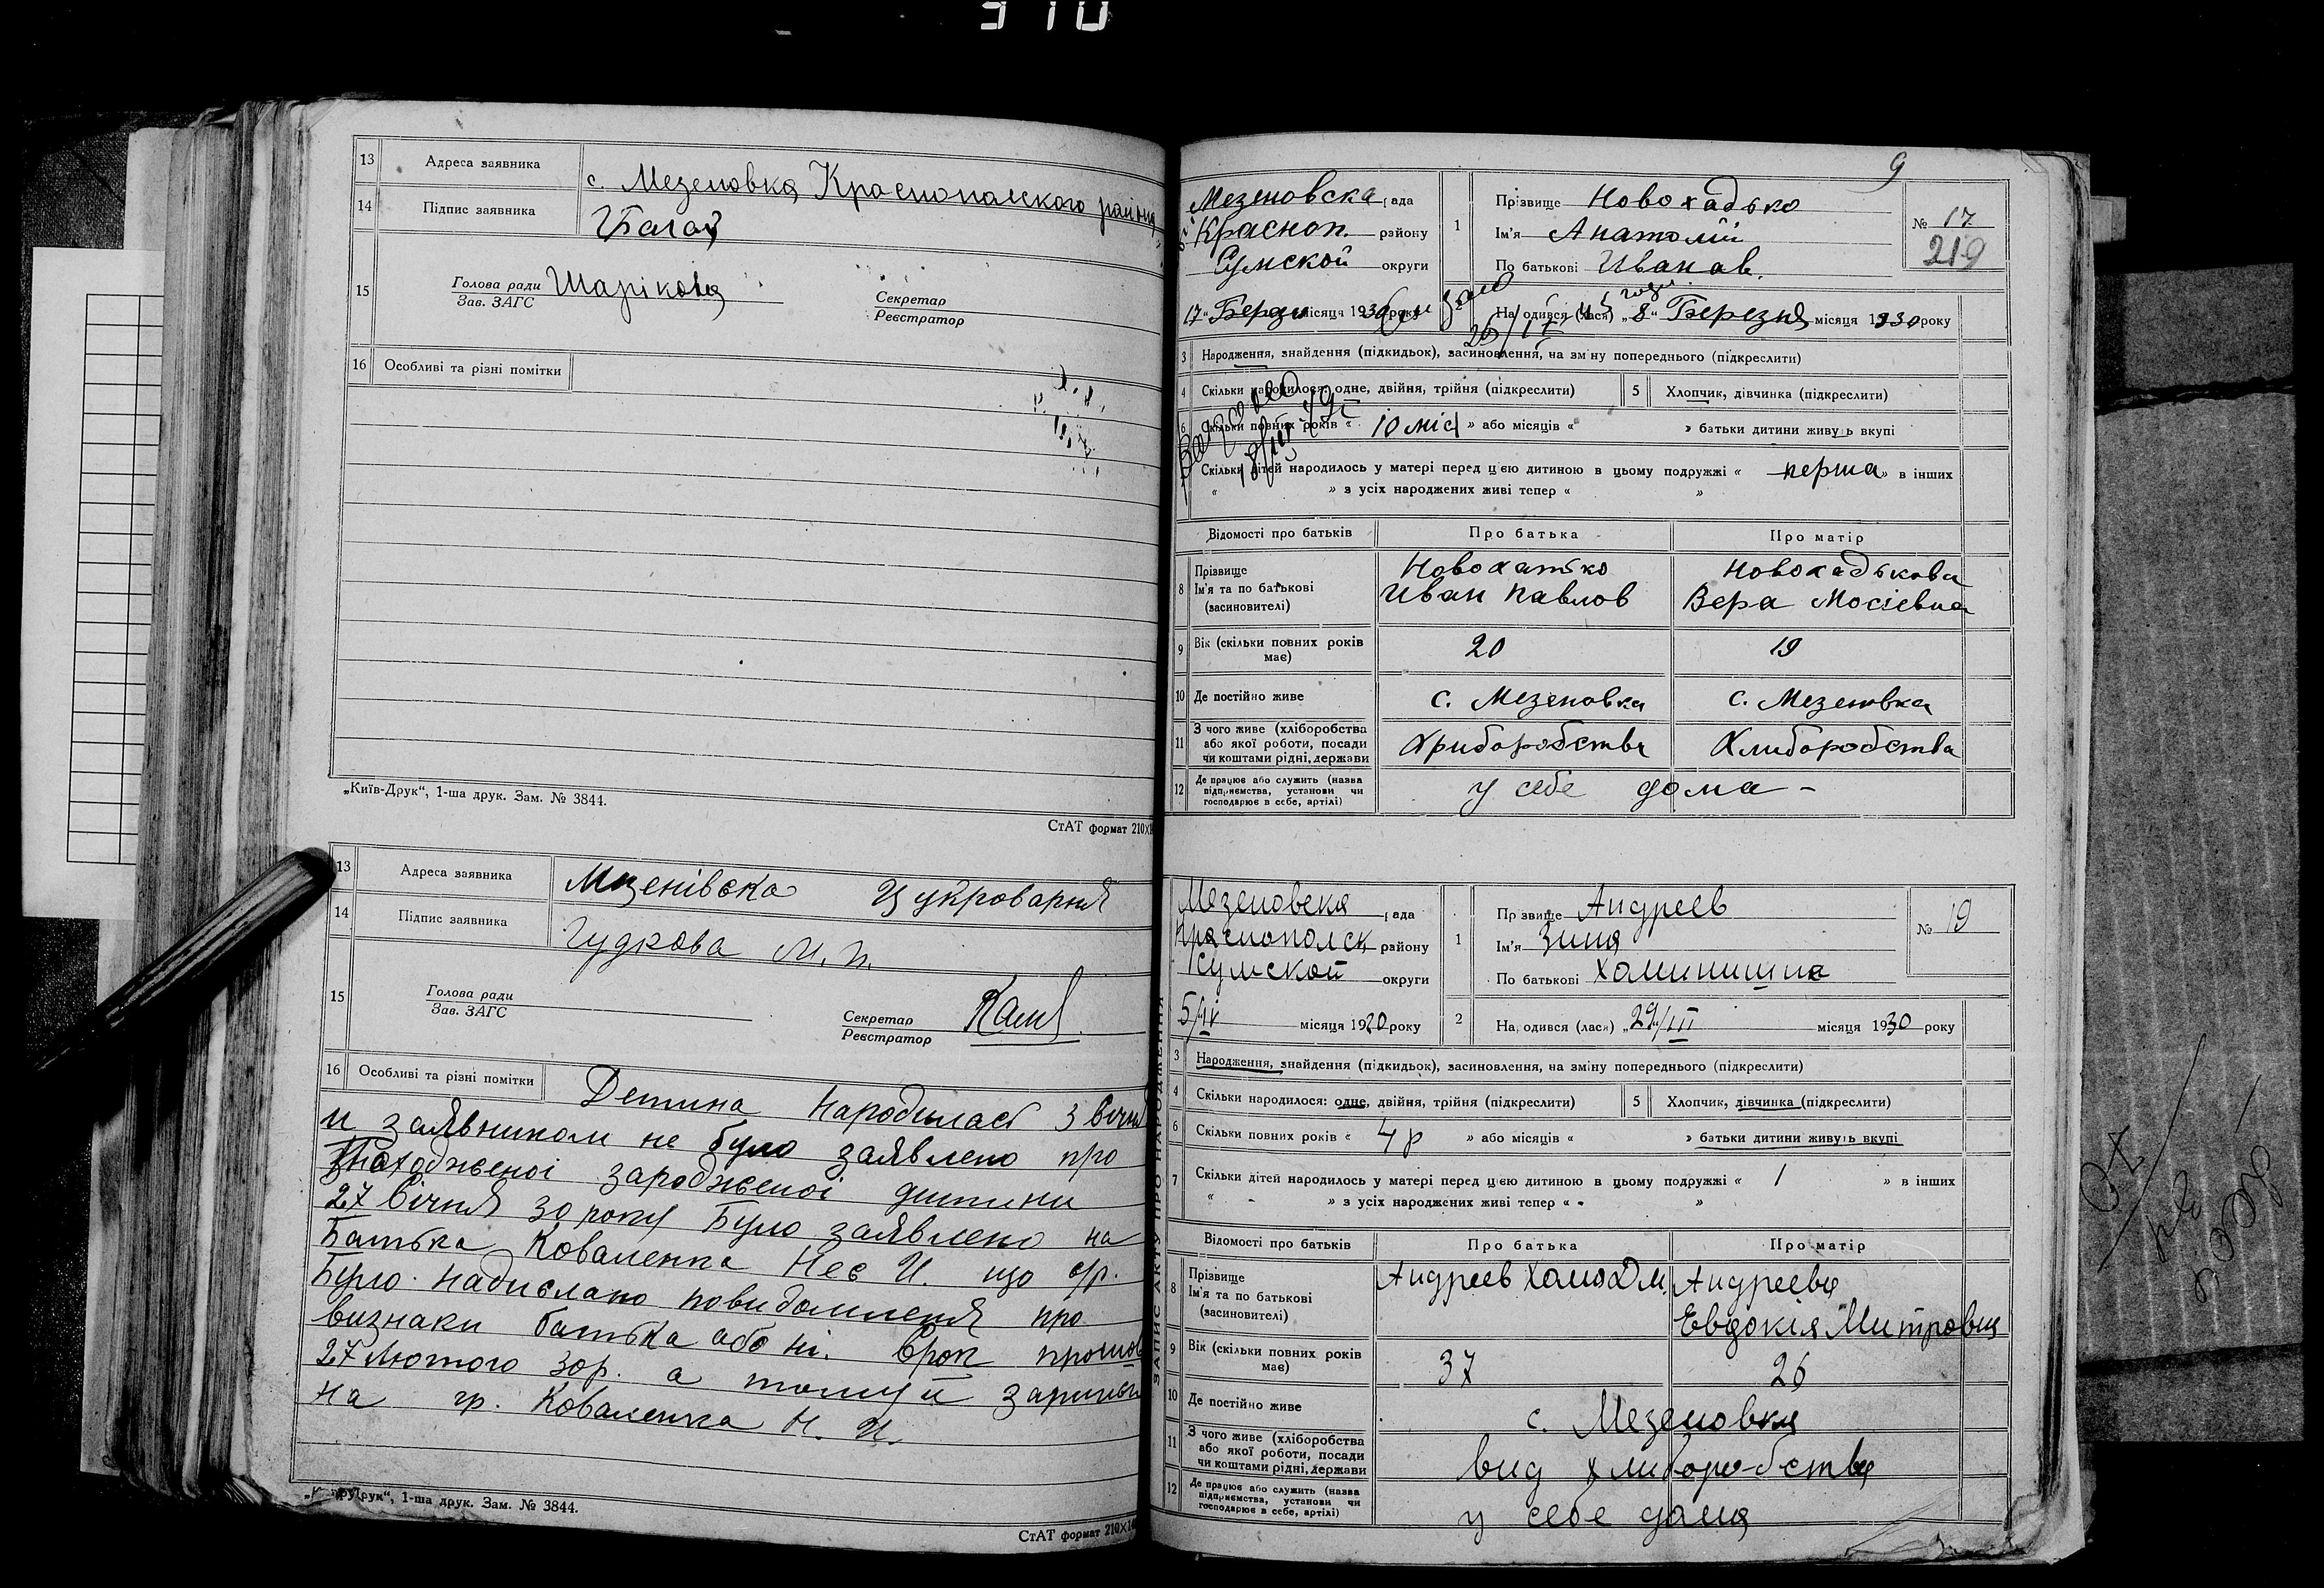 910
13 Адреса заявника с. Мезеновка Краснопалского района
14 Підпис заявника
15 Голова ради Шарікова
Зав. ЗАГС
Секретар
Реєстратор
16 Особливі та різні помітки
„Київ-Друк“, 1-ша друк. Зам. № 3844.
СтАТ формат 210×1
13 Адреса заявника Мезенівска Цукроварня
14 Підпис заявника Гудкова М. П.
15 Голова ради
Зав. ЗАГС
Секретар
Реєстратор
16 Особливі та різні помітки Детина народилась 3 вічня
и заявником не було заявлено про
зароджєноі дитини
27 вічня 30 року Було заявлено на
Батька Коваленка що гр.
Було надислано повидомленя про
визнаки батька або ні. Врок прошов
27 Лютого 30р. а тому й
на гр. Коваленка Н. И.
друк“, 1-ша друк. Зам. № 3844.
СтАТ формат 210×14
9
Мезеновска рада
Красноп. району
Сумской округи
17 місяця 1930 року
1 Прізвище Новохадько
Ім'я Анатолій
По батькові Иванав.
№ 17
219
2 На одився (лася) „8“ Березня місяця 1930 року
3 Народження, знайдення (підкидьок), засиновлення, на зміну попереднього (підкреслити)
4 Скільки народилося: одне, двійня, трійня (підкреслити) 5 Хлопчик, дівчинка (підкреслити)
6 Скільки повних років « 10 міс » або місяців « » батьки дитини живуь вкупі
Скільки дітей народилось у матері перед цією дитиною в цьому подружжі « перша » в інших
« » з усіх народжених живі тепер « »
Відомості про батьків Про батька Про матір
8 Прізвище Ім'я та по батькові (засиновителі) Новохатько Новохадькова
Иван Павлов Вера Мосіевна
9 Вік (скільки повних років має) 20 19
10 Де постійно живе с. Мезеновка с. Мезеновка
11 З чого живе (хліборобства або якої роботи, посади чи коштами рідні, держави Хриборобства Хлиборобства
12 Де працює або служить (назва підприємства, установи чи господарює в себе, артілі) у себе дома -
ЗАПИС АКТУ ПРО НАРОДЖЕННЯ
Мезеновска рада
Краснополск району
Сумской округи
5/IV місяця 1930 року
1 Пр звище Андреев
Ім'я Зина
По батькові
№ 19
2 На одився (лася) „29/III місяця 1930 року
3 Народження, знайдення (підкидьок), засиновлення, на зміну попереднього (підкреслити)
4 Скільки народилося: одне, двійня, трійня (підкреслити) 5 Хлопчик, дівчинка (підкреслити)
6 Скільки повних років « 4 р » або місяців « » батьки дитини живуь вкупі
7 Скільки дітей народилось у матері перед цією дитиною в цьому подружжі « 1 » в інших
« - » з усіх народжених живі тепер « »
Відомості про батьків Про батька Про матір
8 Прізвище Ім'я та по батькові (засиновителі) Андреев Андреева
Евдокія Митровна
9 Вік (скільки повних років має) 37 26
10 Де постійно живе с. Мезеновка
11 З чого живе (хліборобства або якої роботи, посади чи коштами рідні, держави вид хлиборо-бства
12 Де працює або служить (назва підприємства, установи чи господарює в себе, артілі) у себе дома